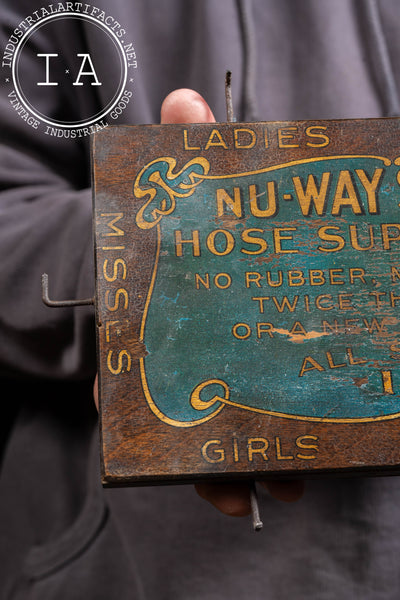 INDUSTRIALARTIFACTS.NET
I A
VINTAGE INDUSTRIAL GOODS
LADIES
MISSES
NU-WAY
HOSE SUP
NO RUBBER,
TWICE TH
OR A NEW
ALL
GIRLS